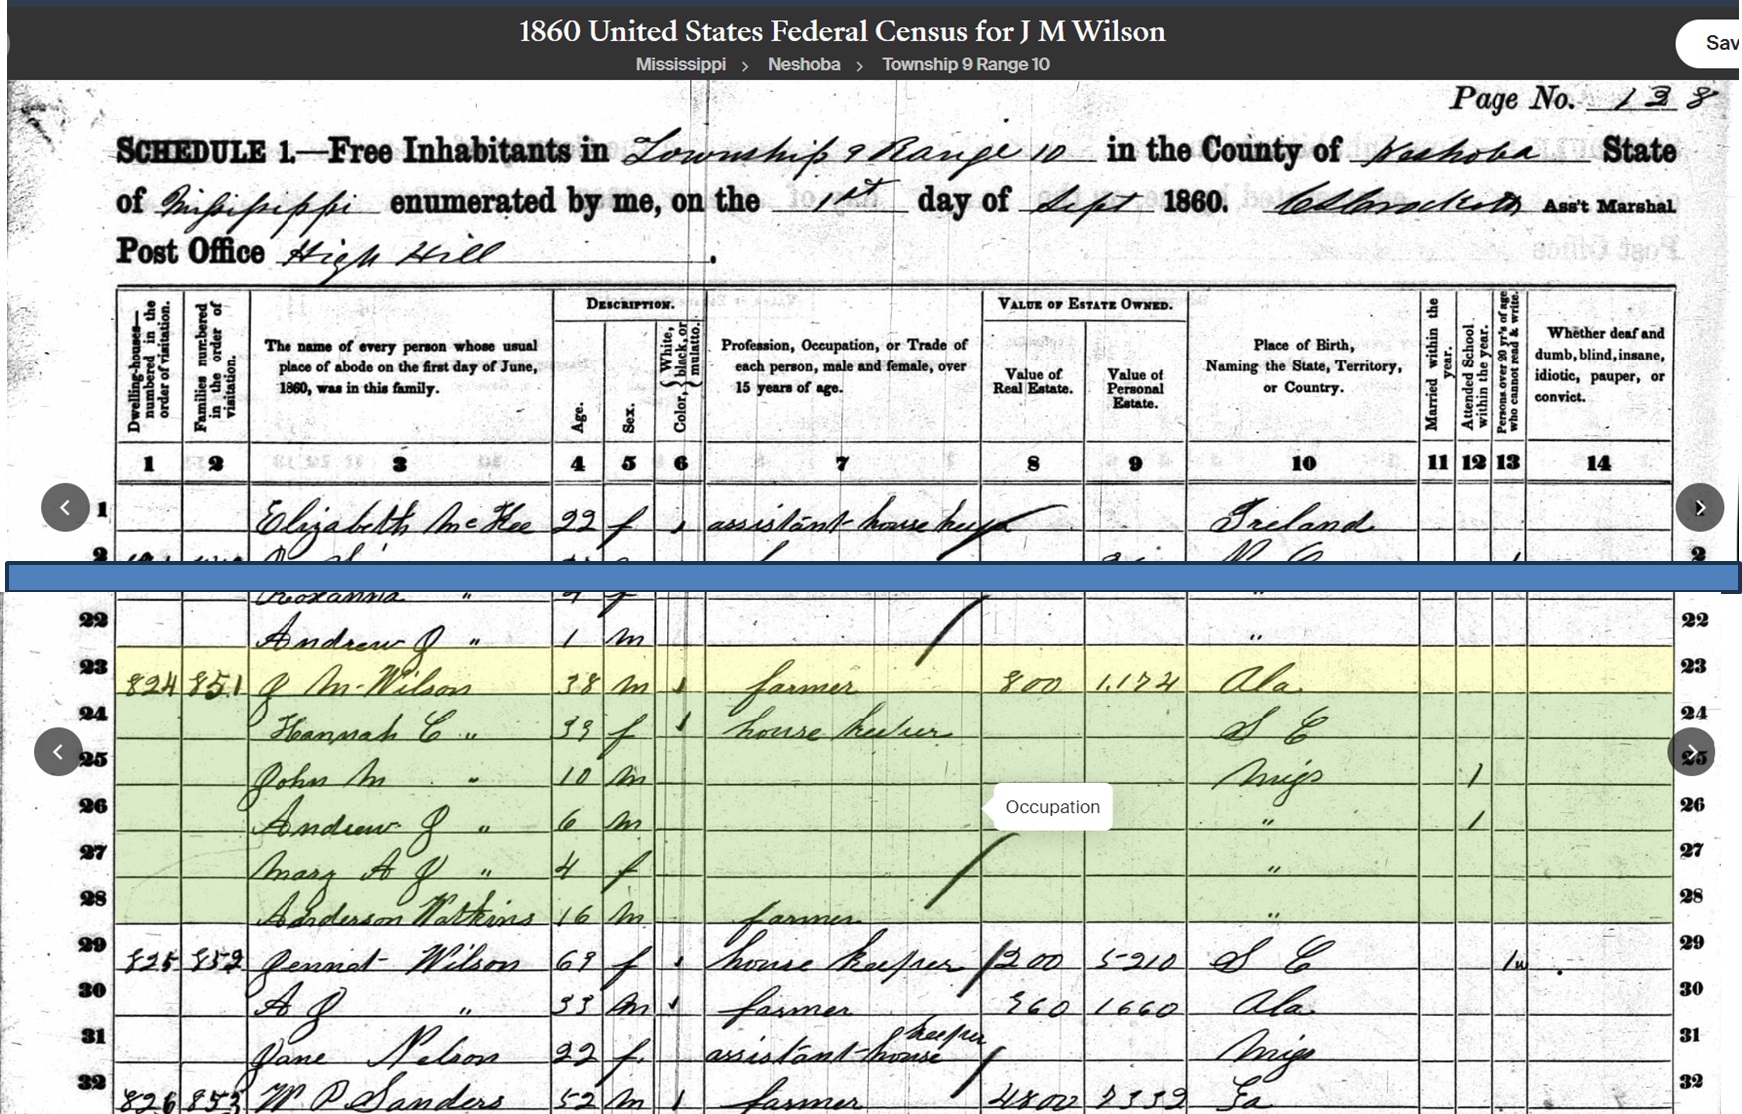 1860 United States Federal Census for J M Wilson
Sav
Mississippi > Neshoba > Township 9 Range 10
Page No. 138
SCHEDULE 1.—Free Inhabitants in Township 9 Range 10 in the County of Neshoba State
of Mississippi enumerated by me, on the 1st day of Sept 1860. Ass't Marshal.
Post Office High Hill.
Dwelling-houses—numbered in the order of visitation.
Families numbered in the order of visitation.
The name of every person whose usual place of abode on the first day of June, 1860, was in this family.
DESCRIPTION.
Age.
Sex.
Color, White, black, or mulatto.
Profession, Occupation, or Trade of each person, male and female, over 15 years of age.
VALUE OF ESTATE OWNED.
Value of Real Estate.
Value of Personal Estate.
Place of Birth, Naming the State, Territory, or Country.
Married within the year.
Attended School within the year.
Persons over 20 y'rs of age who cannot read & write.
Whether deaf and dumb, blind, insane, idiotic, pauper, or convict.
1 2 3 4 5 6 7 8 9 10 11 12 13 14
1 Elizabeth McKee 22 f assistant house keeper Ireland
2 2
Roxanna "
22 Andrew J " 1 m " 22
23 824 851 J M Wilson 38 m 1 farmer 800 1.174 Ala 23
24 Hannah C " 39 f 1 house keeper S C 24
25 John M " 10 m Miss 1 25
26 Andrew J " 6 m " 1 26
Occupation
27 Mary A J " 4 f " 27
28 Anderson Watkins 16 m farmer " 28
29 825 852 Jennet Wilson 69 f house keeper 1200 5210 S C 29
30 A J " 33 m farmer 360 1660 Ala 30
31 Jane Nelson 22 f. assistant house keeper Miss 31
32 826 853 W P Sanders 52 m 1 farmer 4800 7339 Ga 32